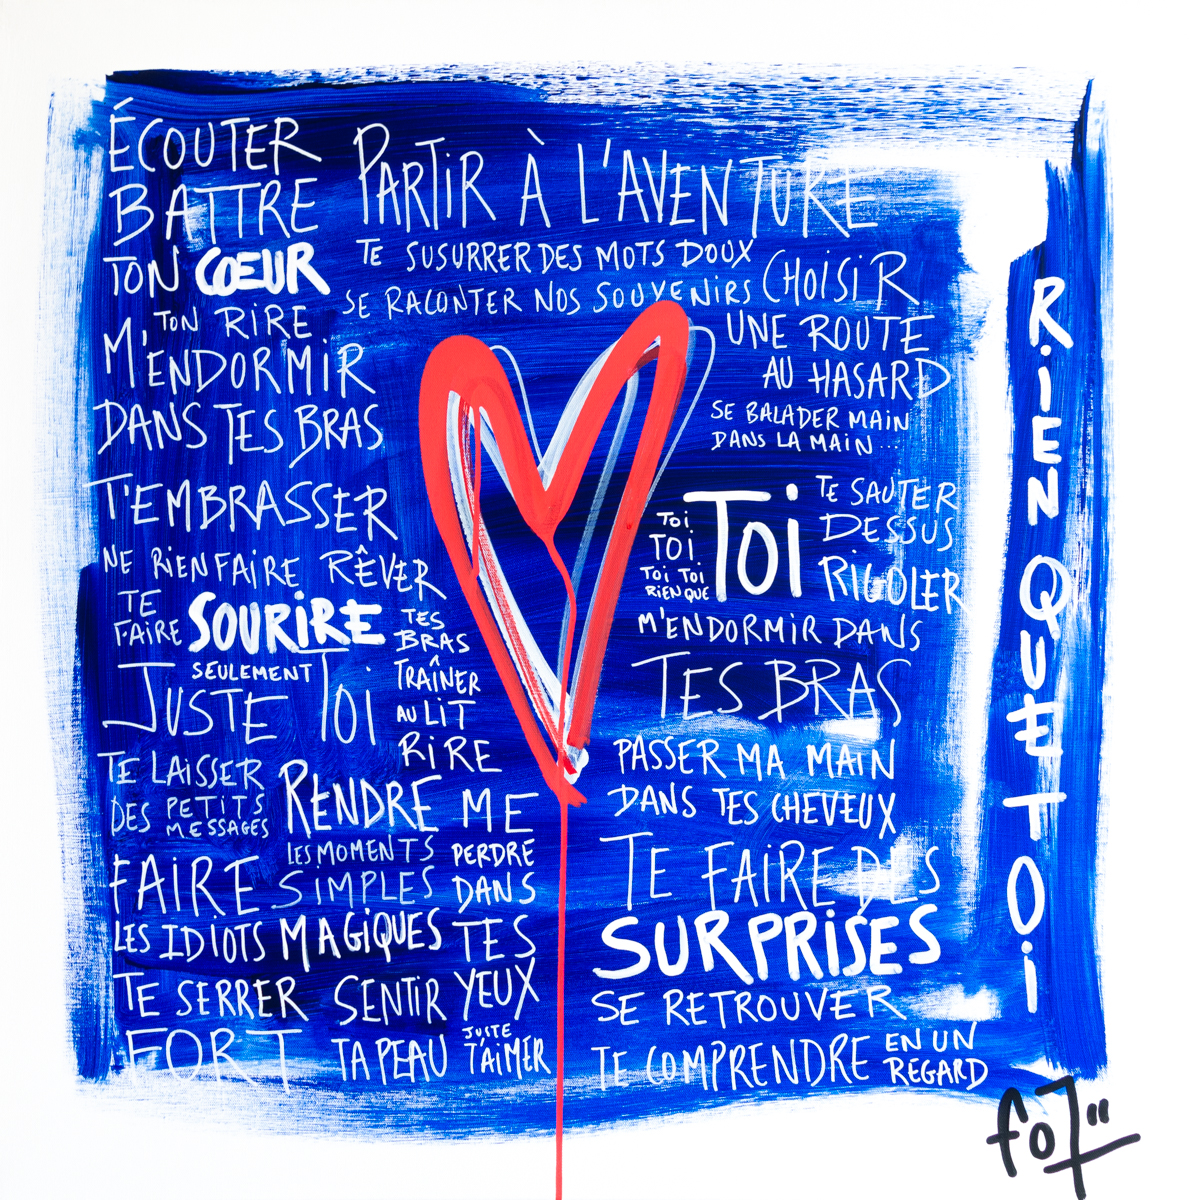 ÉCOUTER
BATTRE
TON CŒUR
TON RIRE
M'ENDORMIR
DANS TES BRAS
T'EMBRASSER
NE RIEN FAIRE RÊVER
TE
FAIRE SOURIRE
SEULEMENT
JUSTE TOI
TES
BRAS
TRAÎNER
AU LIT
RIRE
TE LAISSER
DES PETITS
MESSAGES
FAIRE
LES IDIOTS
TE SERRER
FORT
RENDRE
LES MOMENTS
SIMPLES
MAGIQUES
SENTIR
TA PEAU
ME
PERDRE
DANS
TES
YEUX
JUSTE
T'AIMER
PARTIR À L'AVENTURE
TE SUSURRER DES MOTS DOUX
SE RACONTER NOS SOUVENIRS
CHOISIR
UNE ROUTE
AU HASARD
SE BALADER MAIN
DANS LA MAIN...
TOI
TOI
TOI TOI
RIEN QUE
TOI
TE SAUTER
DESSUS
RIGOLER
M'ENDORMIR DANS
TES BRAS
PASSER MA MAIN
DANS TES CHEVEUX
TE FAIRE DES
SURPRISES
SE RETROUVER
TE COMPRENDRE
EN UN
REGARD
RIEN QUE TOI